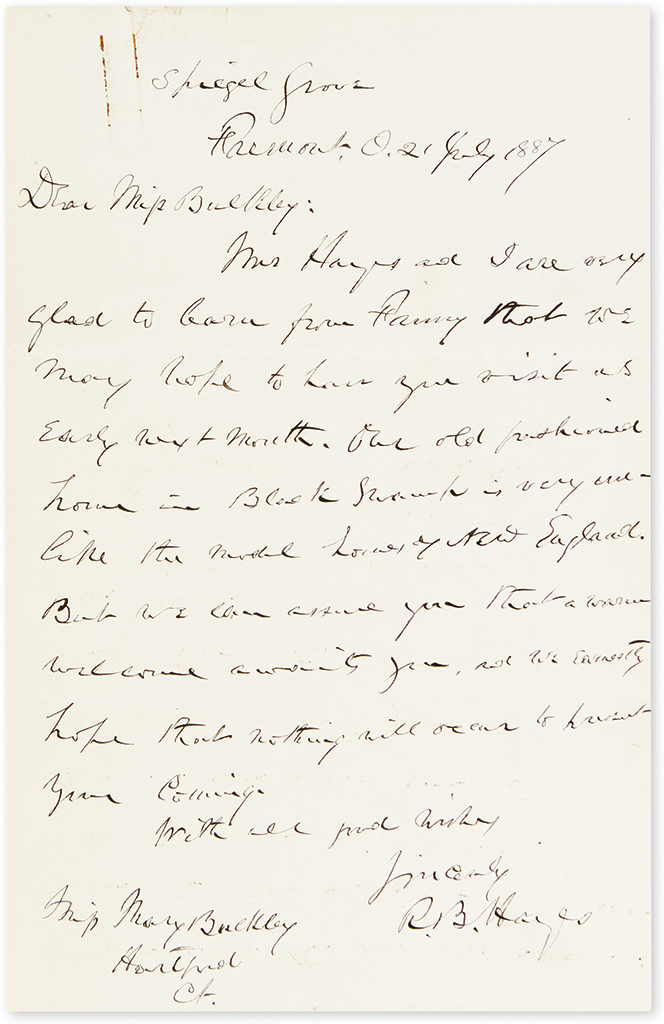 Spiegel Grove
Fremont, O. 21 July 1887
Dear Miss Bulkley:
Mrs Hayes ad I are very
glad to learn from Fanny that we
may hope to have you visit us
early next month. Our old fashioned
home in Black Swamp is very un-
like the model homes of New England.
But we can assure you that a warm
welcome awaits you, ad we earnestly
hope that nothing will occur to prevent
your coming.
With all good wishes
Sincerely
R. B. Hayes
Miss Mary Bulkley
Hartford
Ct.